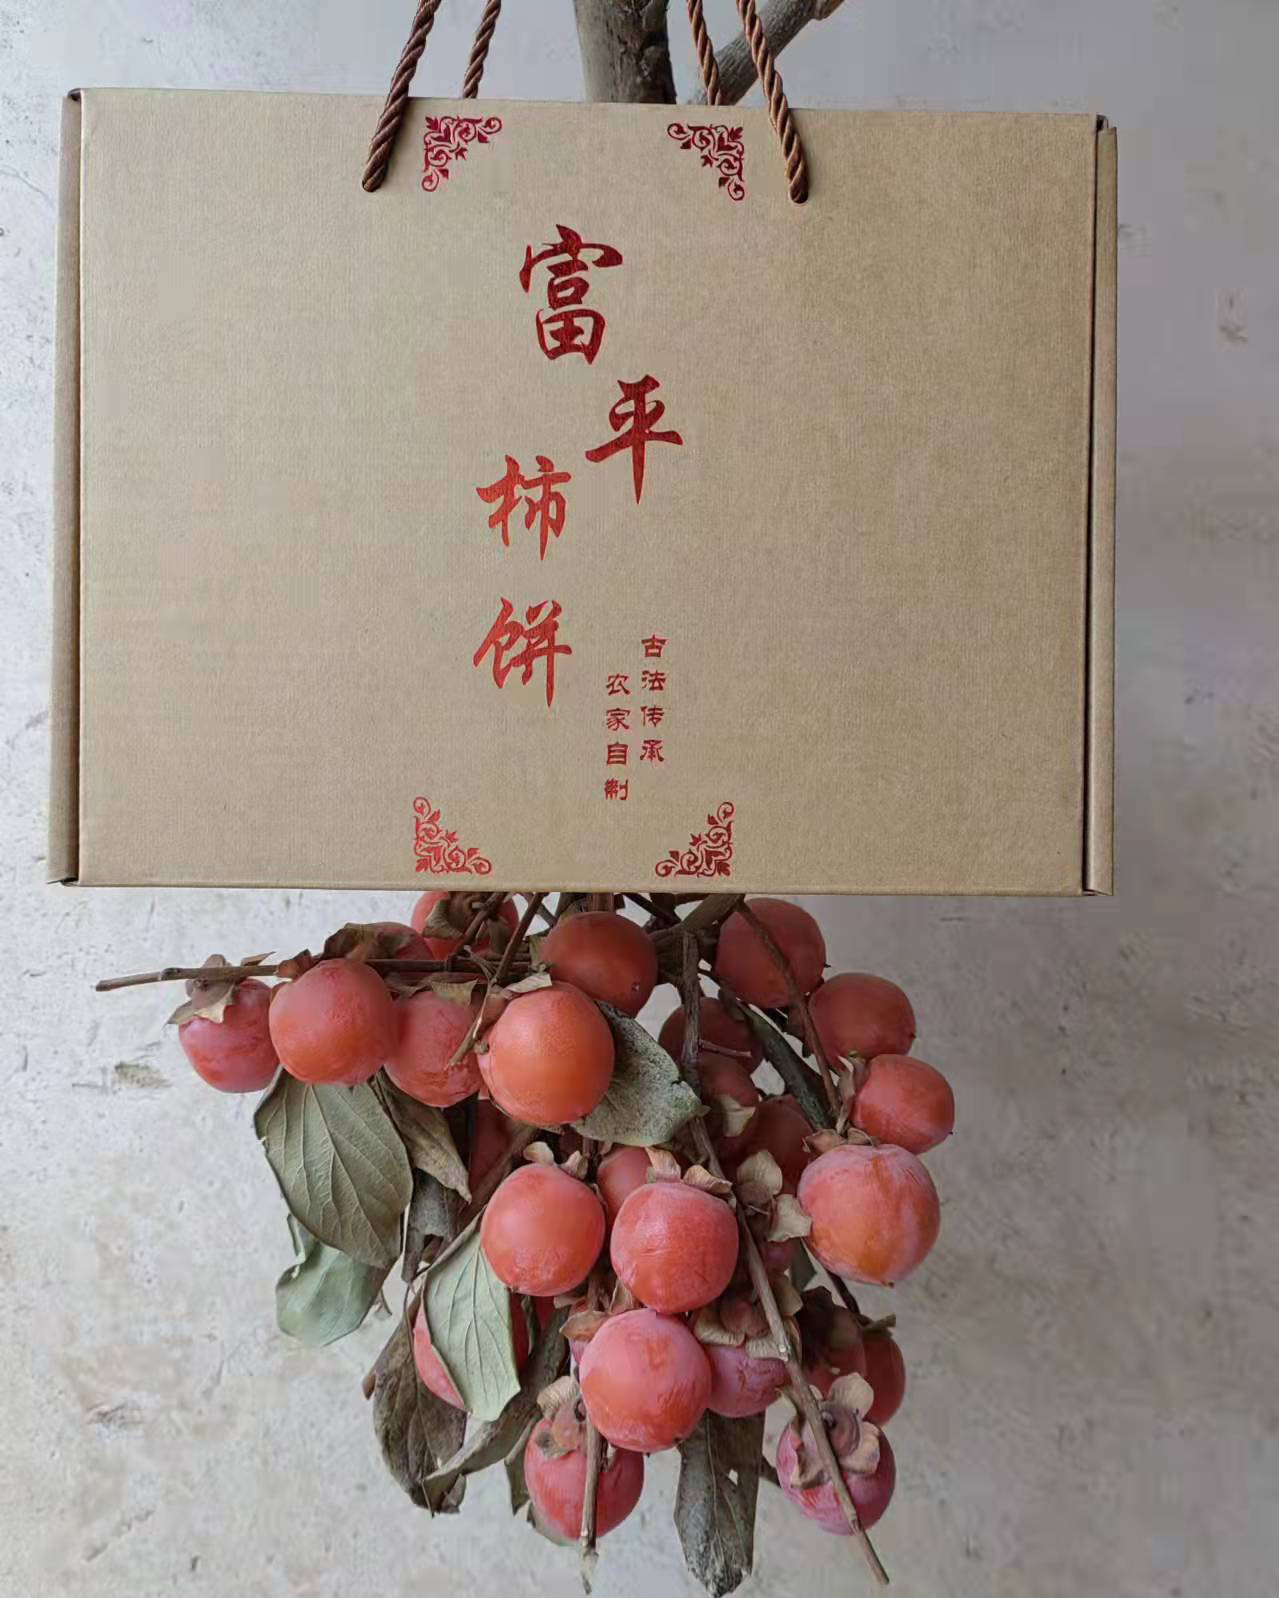 富平
柿饼
古法传承
农家自制